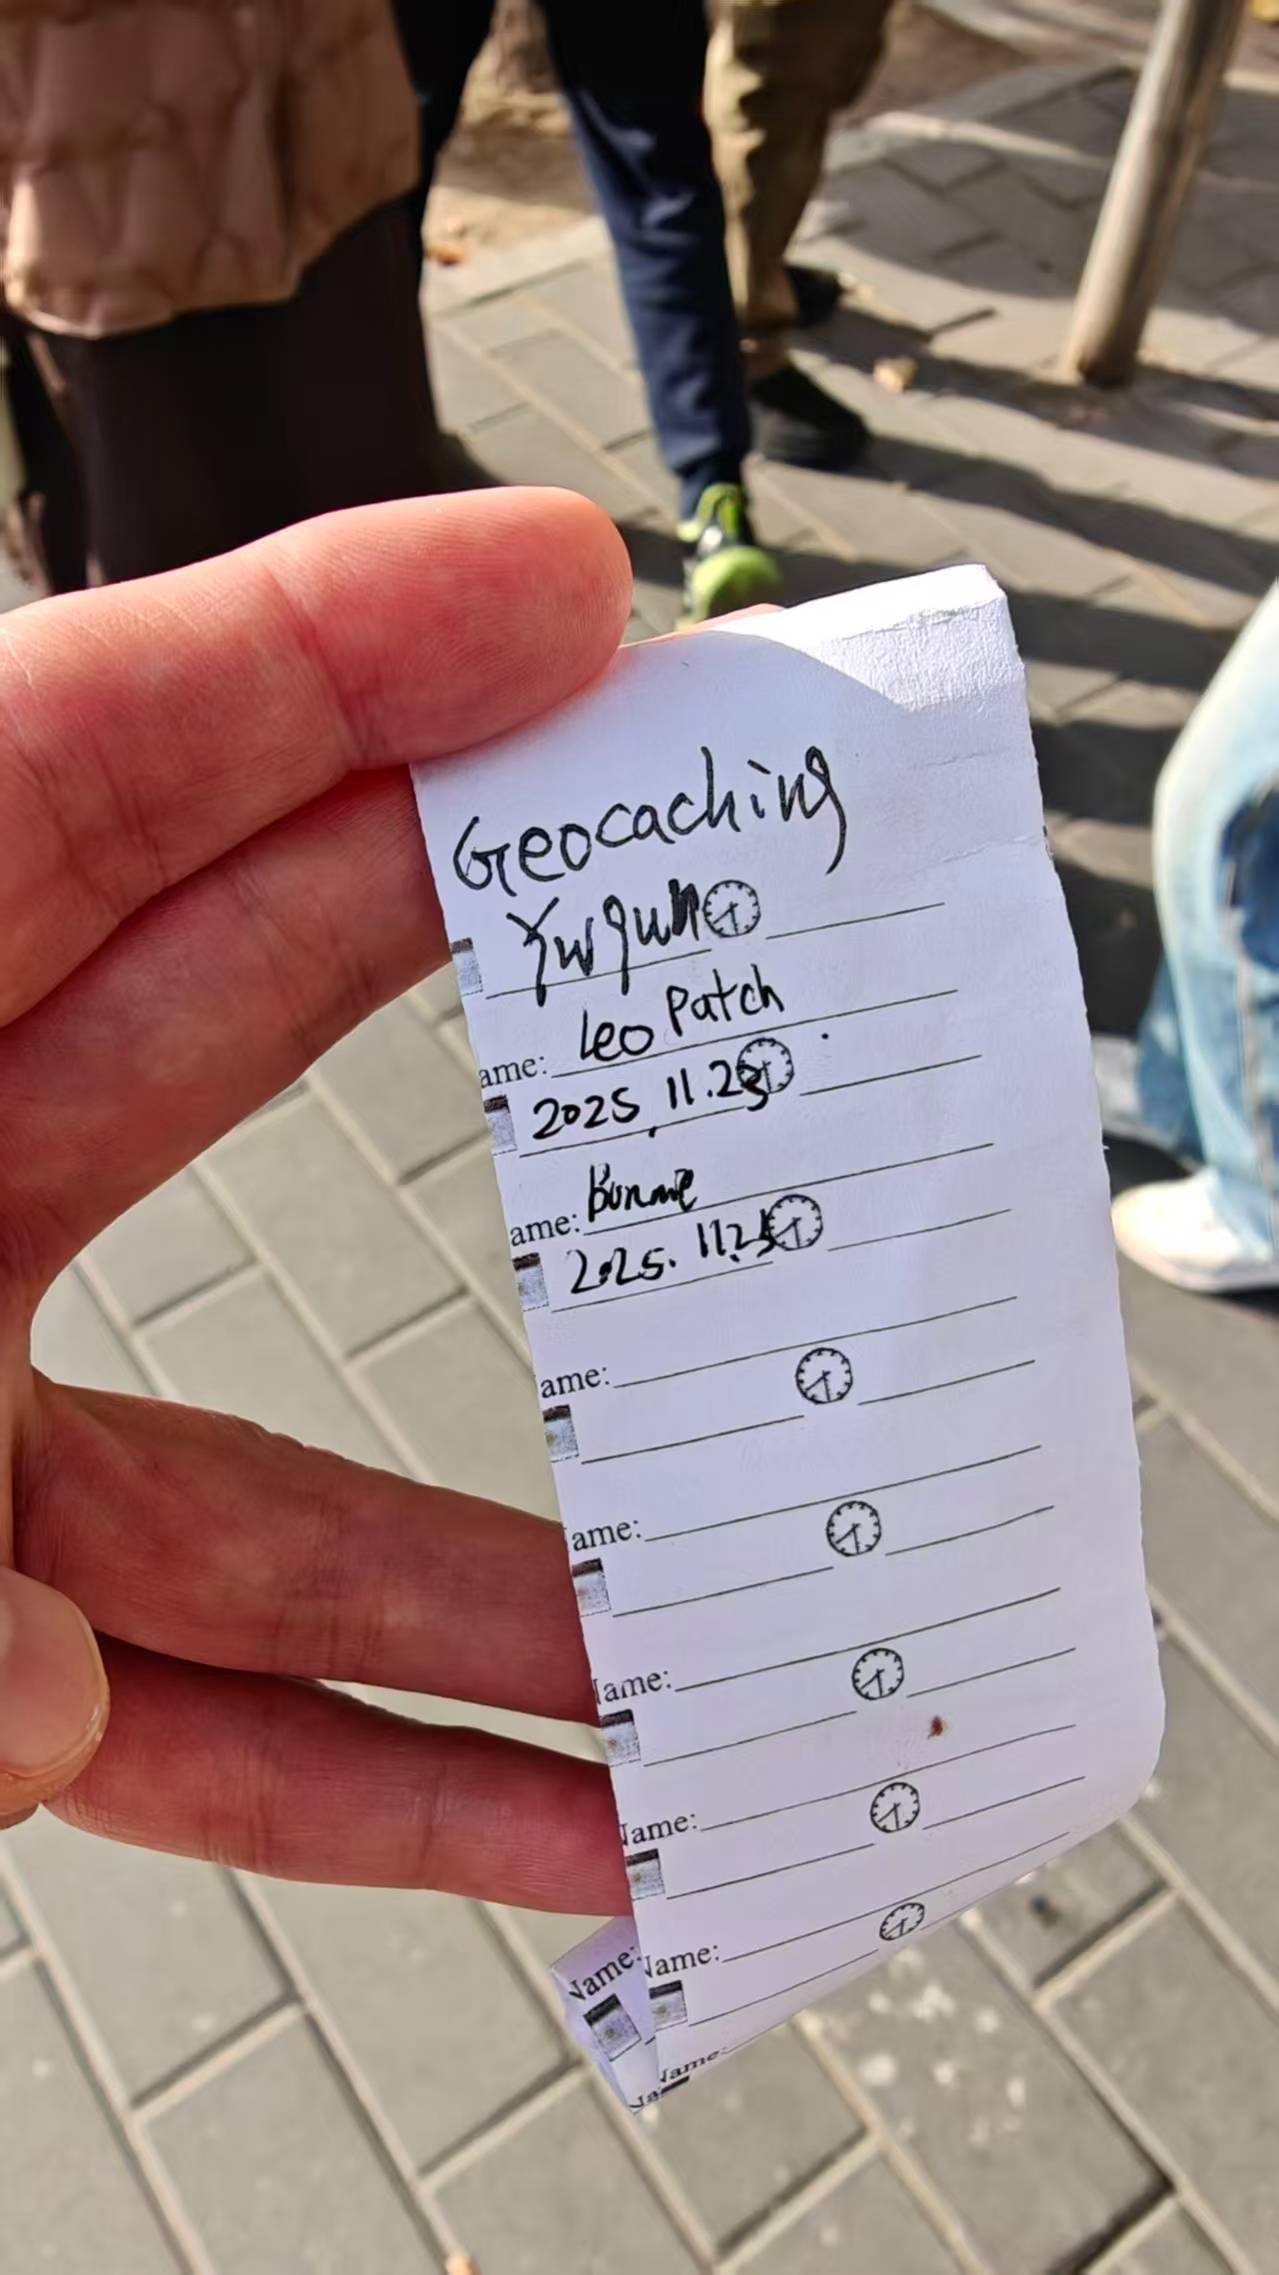 Geocaching
Leo Patch
ame:
2025.11.23
Bonnie
ame:
2025.11.23
ame:
ame:
Name:
Name:
Name:
Name:
Name:
Na